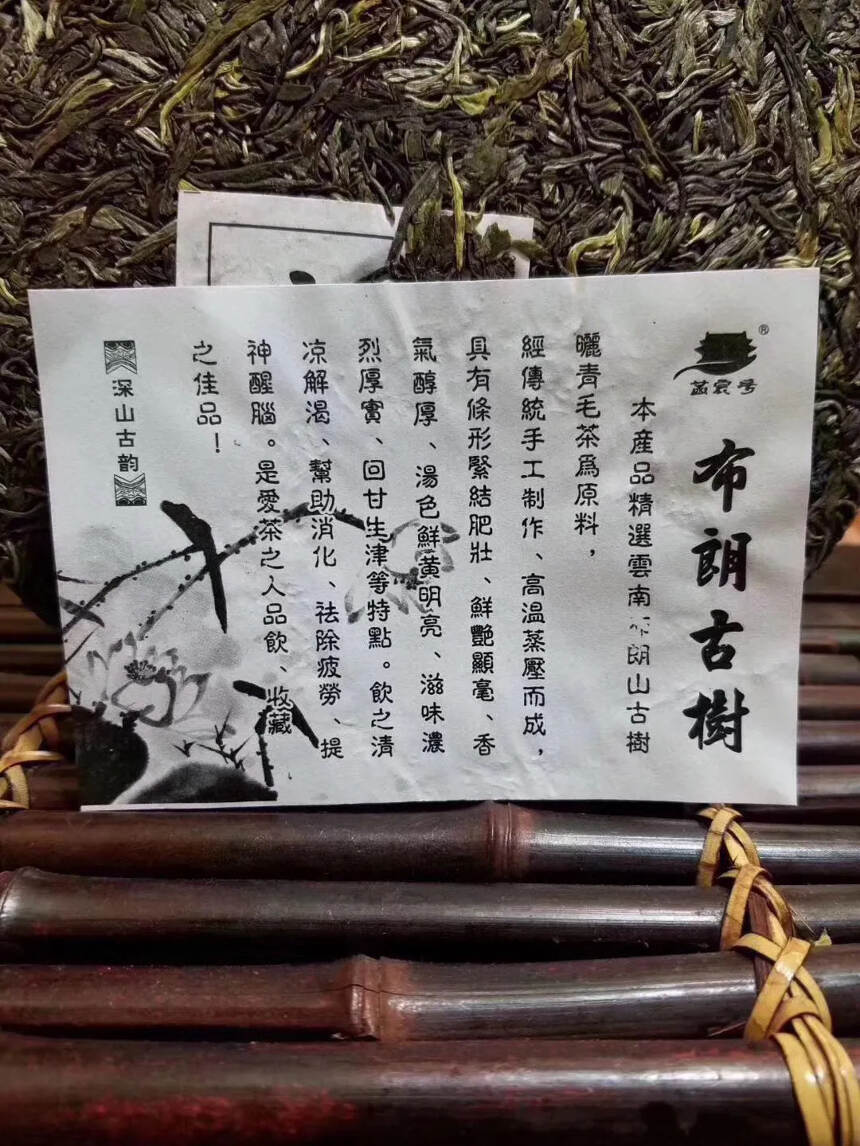 布朗古樹
本産品精選雲南布朗山古樹
曬青毛茶爲原料，
經傳統手工制作、高温蒸壓而成，
具有條形緊結肥壯、鮮艷顯毫、香
氣醇厚、湯色鮮黄明亮、滋味濃
烈厚實、回甘生津等特點。飲之清
凉解渴、幫助消化、祛除疲勞、提
神醒腦。是愛茶之人品飲、收藏
之佳品！
深山古韵